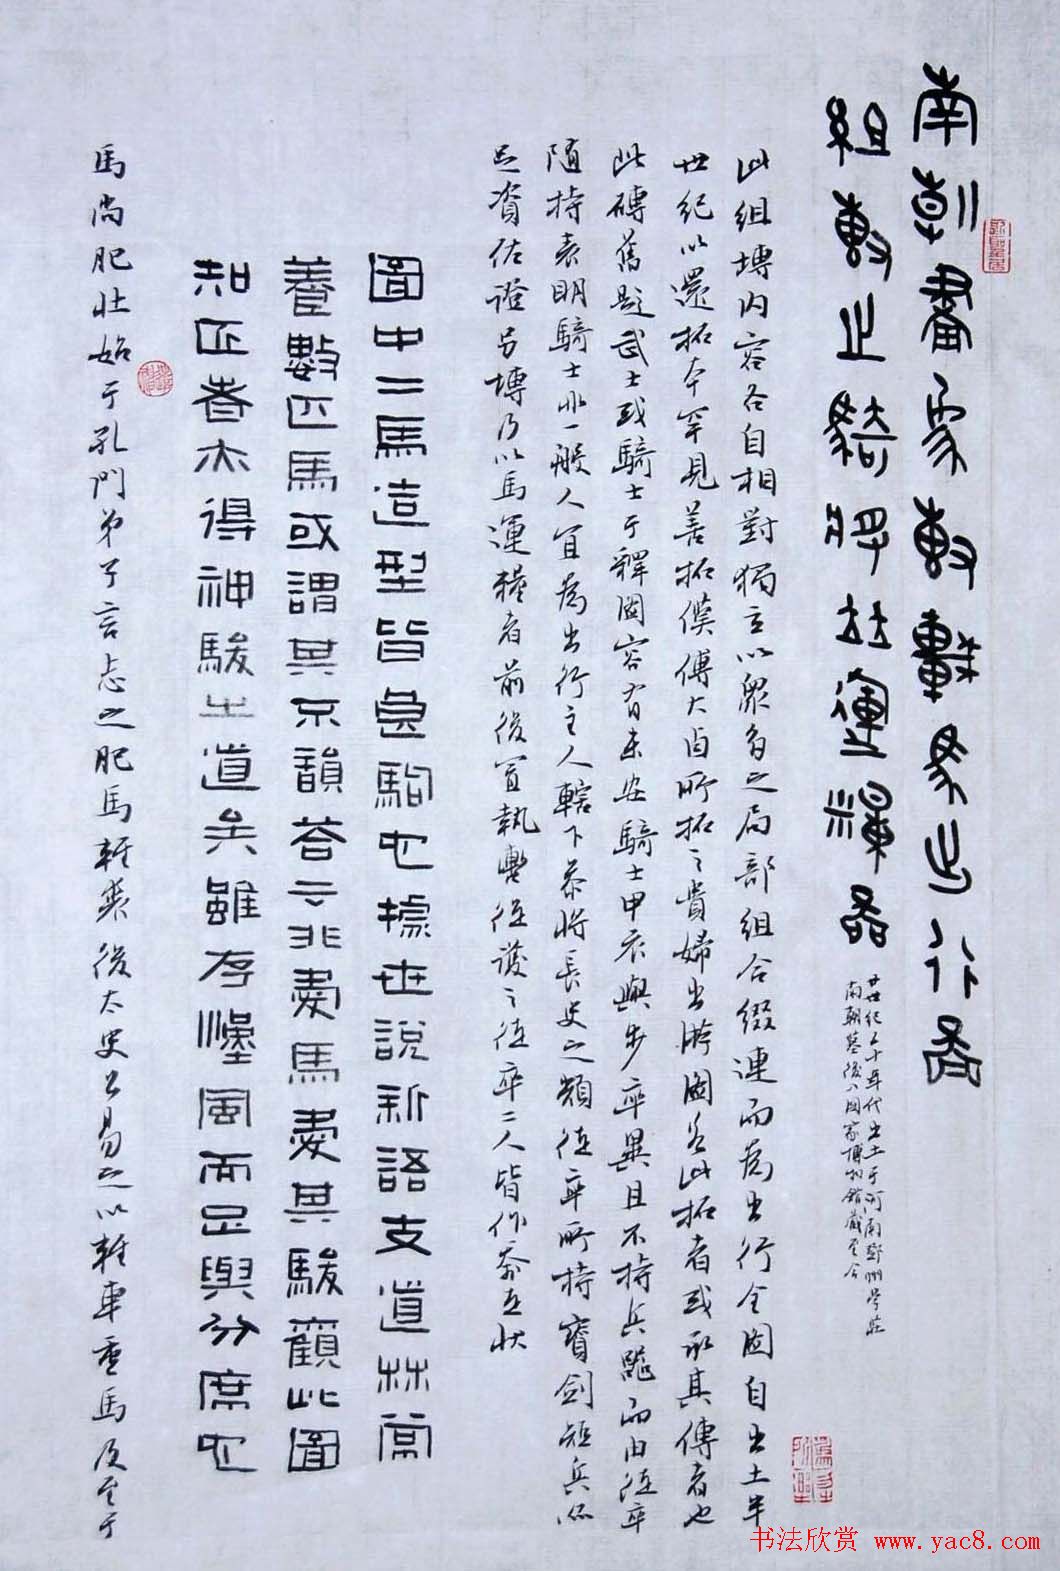 南朝畫象專馬出行啚
組專之騎將運糧啚
廿世紀五十年代出土于河南鄧州學莊
南朝墓後入國家博物館藏至今
此組塼内容各自相對獨立以眾多之局部組合綴連而為出行全圖自出土半
世紀以還拓本罕見善拓僕傅大卣所拓之貴婦出游圖名此拓者或承其傳者也
此磚舊題武士或騎士于釋圖容有未安騎士甲衣與步卒異且不持兵器而由徒卒
隨持表明騎士非一般人宜為出行主人轄下參將長史之類徒卒所持寶劍短兵亦
足資佐證另塼乃以馬運糧者前後置執轡從護之徒卒二人皆作狀
圖中二馬造型皆良駒也據世說新語支道林常
養數匹馬或謂其不韻答云非愛馬愛其駿觀此圖
知者亦得神駿之道矣雖存風而足與分席也
馬尚肥壯始于孔門弟子言志之肥馬輕裘後太史公易之以車重馬及至于
书法欣赏 www.yac8.com